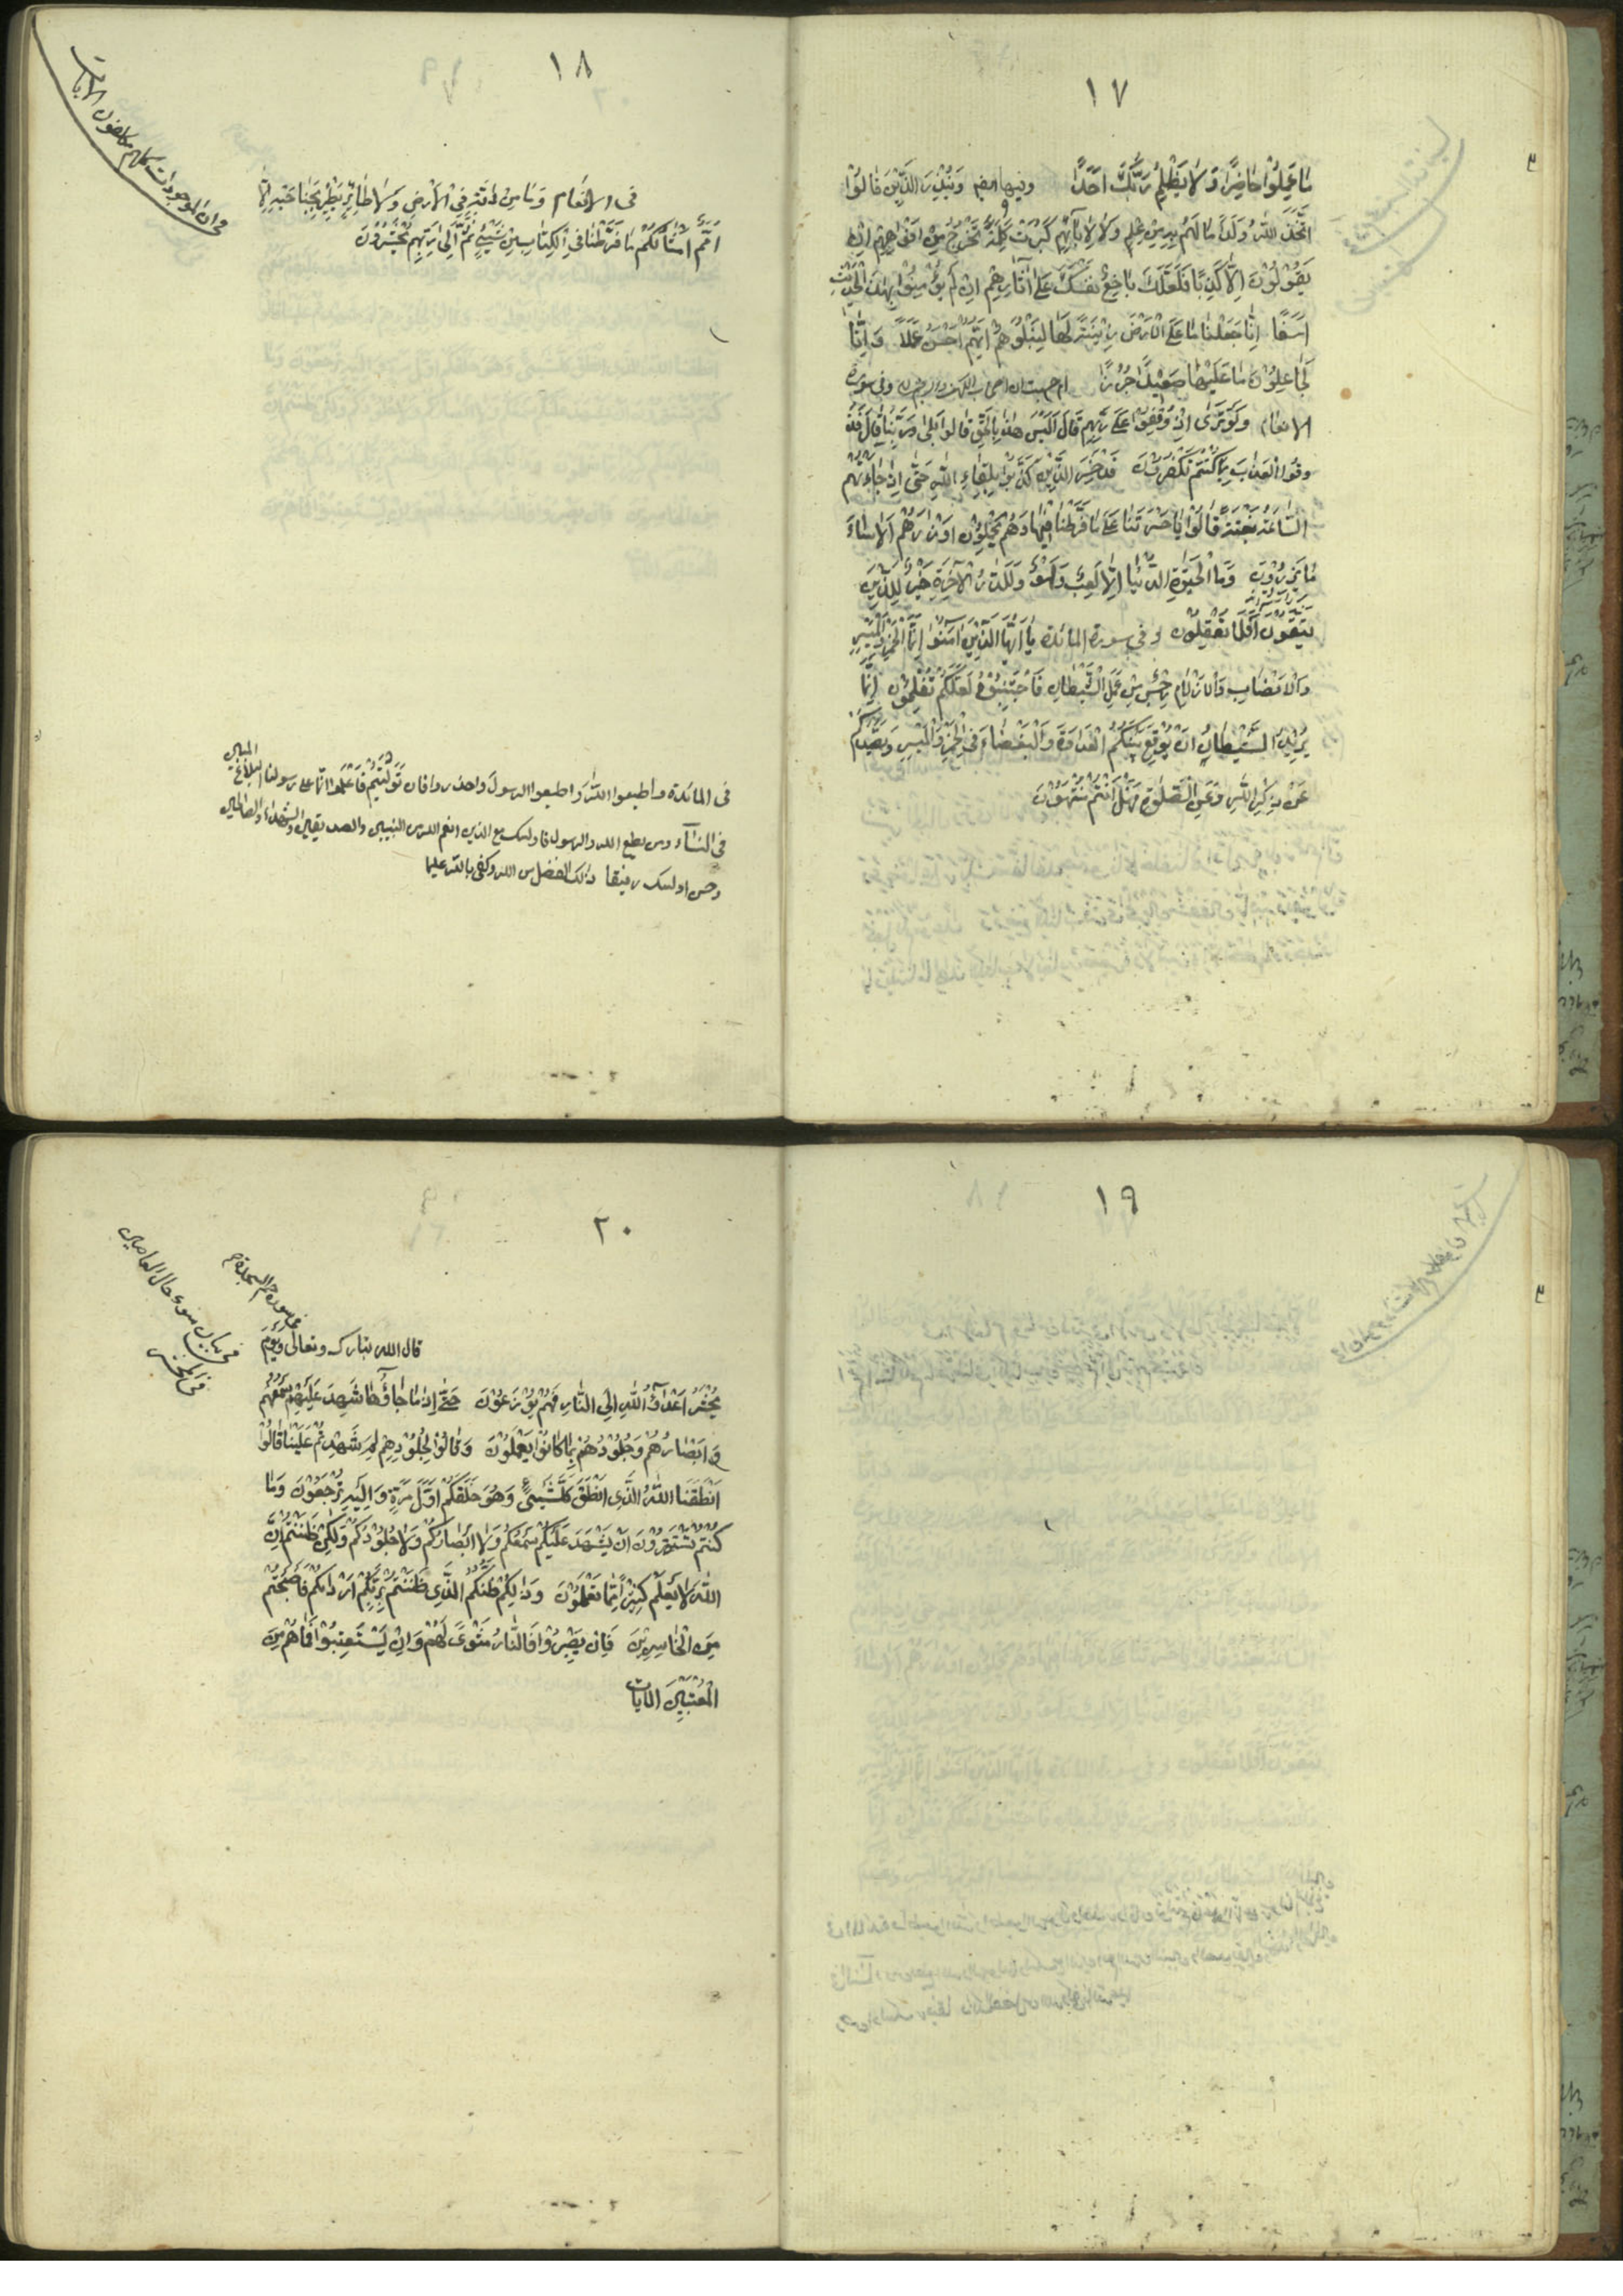 ١٧
مَا عَمِلُوْا حَاضِرًا وَلَا يَظْلِمُ رَبُّكَ اَحَدًا وفيها ايضا وَيُنْذِرَ الَّذِيْنَ قَالُوْا
اتَّخَذَ اللّٰهُ وَلَدًا مَا لَهُمْ بِهِ مِنْ عِلْمٍ وَلَا لِاٰبَآئِهِمْ كَبُرَتْ كَلِمَةً تَخْرُجُ مِنْ اَفْوَاهِهِمْ اِنْ
يَقُوْلُوْنَ اِلَّا كَذِبًا فَلَعَلَّكَ بَاخِعٌ نَفْسَكَ عَلٰى اٰثَارِهِمْ اِنْ لَمْ يُؤْمِنُوْا بِهٰذَا الْحَدِيْثِ
اَسَفًا اِنَّا جَعَلْنَا مَا عَلَى الْاَرْضِ زِيْنَةً لَهَا لِنَبْلُوَهُمْ اَيُّهُمْ اَحْسَنُ عَمَلًا وَاِنَّا
لَجَاعِلُوْنَ مَا عَلَيْهَا صَعِيْدًا جُرُزًا ام حسبت ان اصحاب الكهف والرقيم وفى سورة
الانعام وَلَوْ تَرٰى اِذْ وُقِفُوْا عَلٰى رَبِّهِمْ قَالَ اَلَيْسَ هٰذَا بِالْحَقِّ قَالُوْا بَلٰى وَرَبِّنَا قَالَ فَذُ
وقُوا الْعَذَابَ بِمَا كُنْتُمْ تَكْفُرُوْنَ قَدْ خَسِرَ الَّذِيْنَ كَذَّبُوْا بِلِقَاءِ اللّٰهِ حَتّٰى اِذَا جَاءَتْهُمُ
السَّاعَةُ بَغْتَةً قَالُوْا يَا حَسْرَتَنَا عَلٰى مَا فَرَّطْنَا فِيْهَا وَهُمْ يَحْمِلُوْنَ اَوْزَارَهُمْ اَلَا سَاءَ
مَا يَزِرُوْنَ وَمَا الْحَيٰوةُ الدُّنْيَا اِلَّا لَعِبٌ وَلَهْوٌ وَلَلدَّارُ الْاٰخِرَةُ خَيْرٌ لِلَّذِيْنَ
يَتَّقُوْنَ اَفَلَا تَعْقِلُوْنَ وفى سورة المائدة يَا اَيُّهَا الَّذِيْنَ اٰمَنُوْا اِنَّمَا الْخَمْرُ وَالْمَيْسِرُ
وَالْاَنْصَابُ وَالْاَزْلَامُ رِجْسٌ مِنْ عَمَلِ الشَّيْطَانِ فَاجْتَنِبُوْهُ لَعَلَّكُمْ تُفْلِحُوْنَ اِنَّمَا
يُرِيْدُ الشَّيْطَانُ اَنْ يُوْقِعَ بَيْنَكُمُ الْعَدَاوَةَ وَالْبَغْضَاءَ فِى الْخَمْرِ وَالْمَيْسِرِ وَيَصُدَّكُمْ
عَنْ ذِكْرِ اللّٰهِ وَعَنِ الصَّلٰوةِ فَهَلْ اَنْتُمْ مُنْتَهُوْنَ
١٨
فى ان الموجودات كلهم مكلفون الايات
فى الانعام وَمَا مِنْ دَابَّةٍ فِى الْاَرْضِ وَلَا طَائِرٍ يَطِيْرُ بِجَنَاحَيْهِ اِلَّا
اُمَمٌ اَمْثَالُكُمْ مَا فَرَّطْنَا فِى الْكِتَابِ مِنْ شَيْئٍ ثُمَّ اِلٰى رَبِّهِمْ يُحْشَرُوْنَ
فى المائدة واطيعوا اللّٰه واطيعوا الرسول واحذروا فان تَوَلَّيْتُمْ فَاعْلَمُوا انما على رسولنا البلاغ المبين
فى النسآء ومن يطع اللّٰه والرسول فاولئك مع الذين انعم اللّٰه من النبيين والصديقين والشهداء والصالحين
وحسن اولئك رفيقا ذالك الفضل من اللّٰه وكفى باللّٰه عليما
١٩
٢٠
فى بيان سوء حال العاصين
فى الحشر
سورة حم السجدة
قال اللّٰه تبارك وتعالى وَيَوْمَ
يُحْشَرُ اَعْدَآءُ اللّٰهِ اِلَى النَّارِ فَهُمْ يُوْزَعُوْنَ حَتّٰى اِذَا مَا جَاؤُهَا شَهِدَ عَلَيْهِمْ سَمْعُهُمْ
وَاَبْصَارُهُمْ وَجُلُوْدُهُمْ بِمَا كَانُوْا يَعْمَلُوْنَ وَقَالُوْا لِجُلُوْدِهِمْ لِمَ شَهِدْتُمْ عَلَيْنَا قَالُوْا
اَنْطَقَنَا اللّٰهُ الَّذِى اَنْطَقَ كُلَّ شَيْئٍ وَهُوَ خَلَقَكُمْ اَوَّلَ مَرَّةٍ وَاِلَيْهِ تُرْجَعُوْنَ وَمَا
كُنْتُمْ تَسْتَتِرُوْنَ اَنْ يَشْهَدَ عَلَيْكُمْ سَمْعُكُمْ وَلَا اَبْصَارُكُمْ وَلَا جُلُوْدُكُمْ وَلٰكِنْ ظَنَنْتُمْ اَنَّ
اللّٰهَ لَا يَعْلَمُ كَثِيْرًا مِمَّا تَعْمَلُوْنَ وَذٰلِكُمْ ظَنُّكُمُ الَّذِى ظَنَنْتُمْ بِرَبِّكُمْ اَرْدَاكُمْ فَاَصْبَحْتُمْ
مِنَ الْخَاسِرِيْنَ فَاِنْ يَصْبِرُوْا فَالنَّارُ مَثْوًى لَهُمْ وَاِنْ يَسْتَعْتِبُوْا فَمَا هُمْ مِنَ
الْمُعْتَبِيْنَ الايات